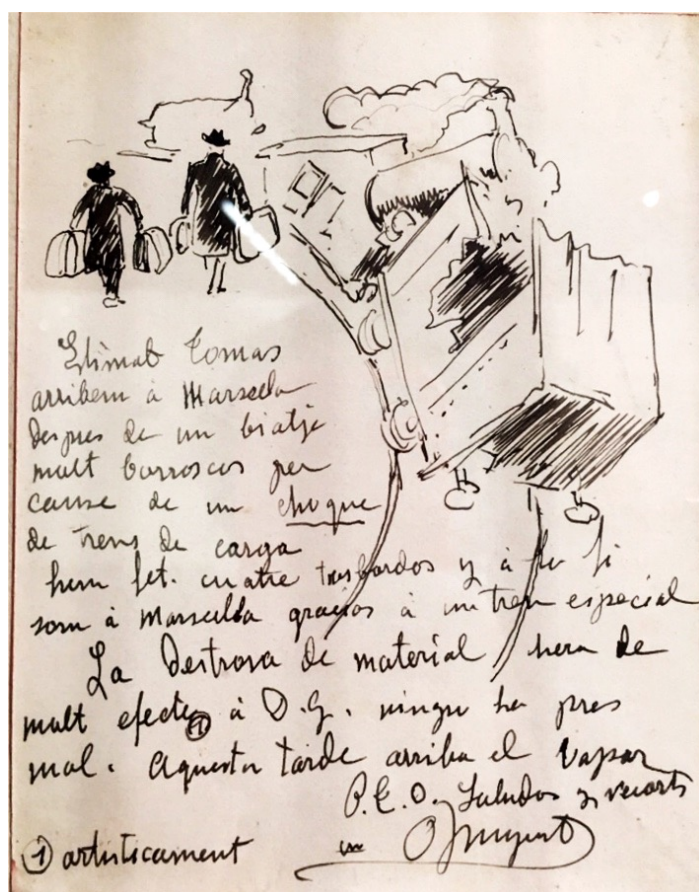 Estimat Tomas
arribem à Marsella
despues de un biatje
mult borroscos per
cause de un choque
de trens de carga
hem fet. cuatre trasbordos y à la fi
som à Marsella gracias à un tren especial
La Destrosa de material hera de
mult efecte ① à D.G. ningu ha pres
mal. Aquesta tarde arriba el Vapor
P.E.O. Saludos y recorts
① artisticament